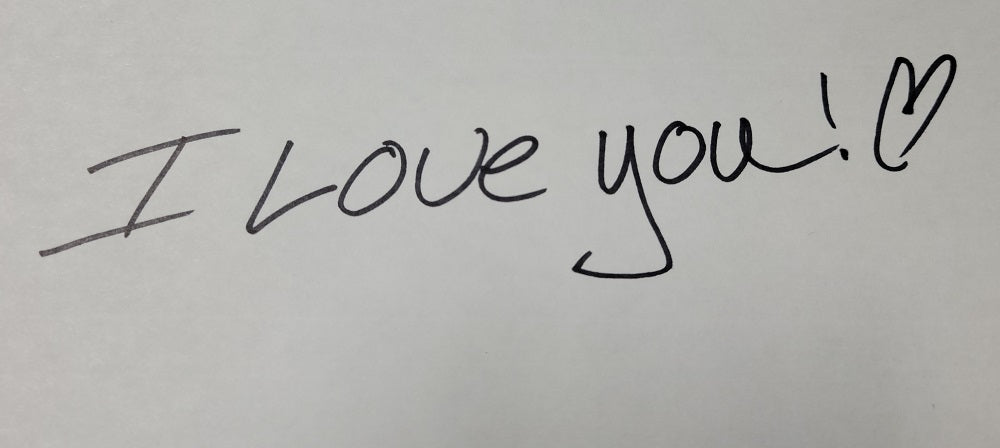 I Love you! ♡